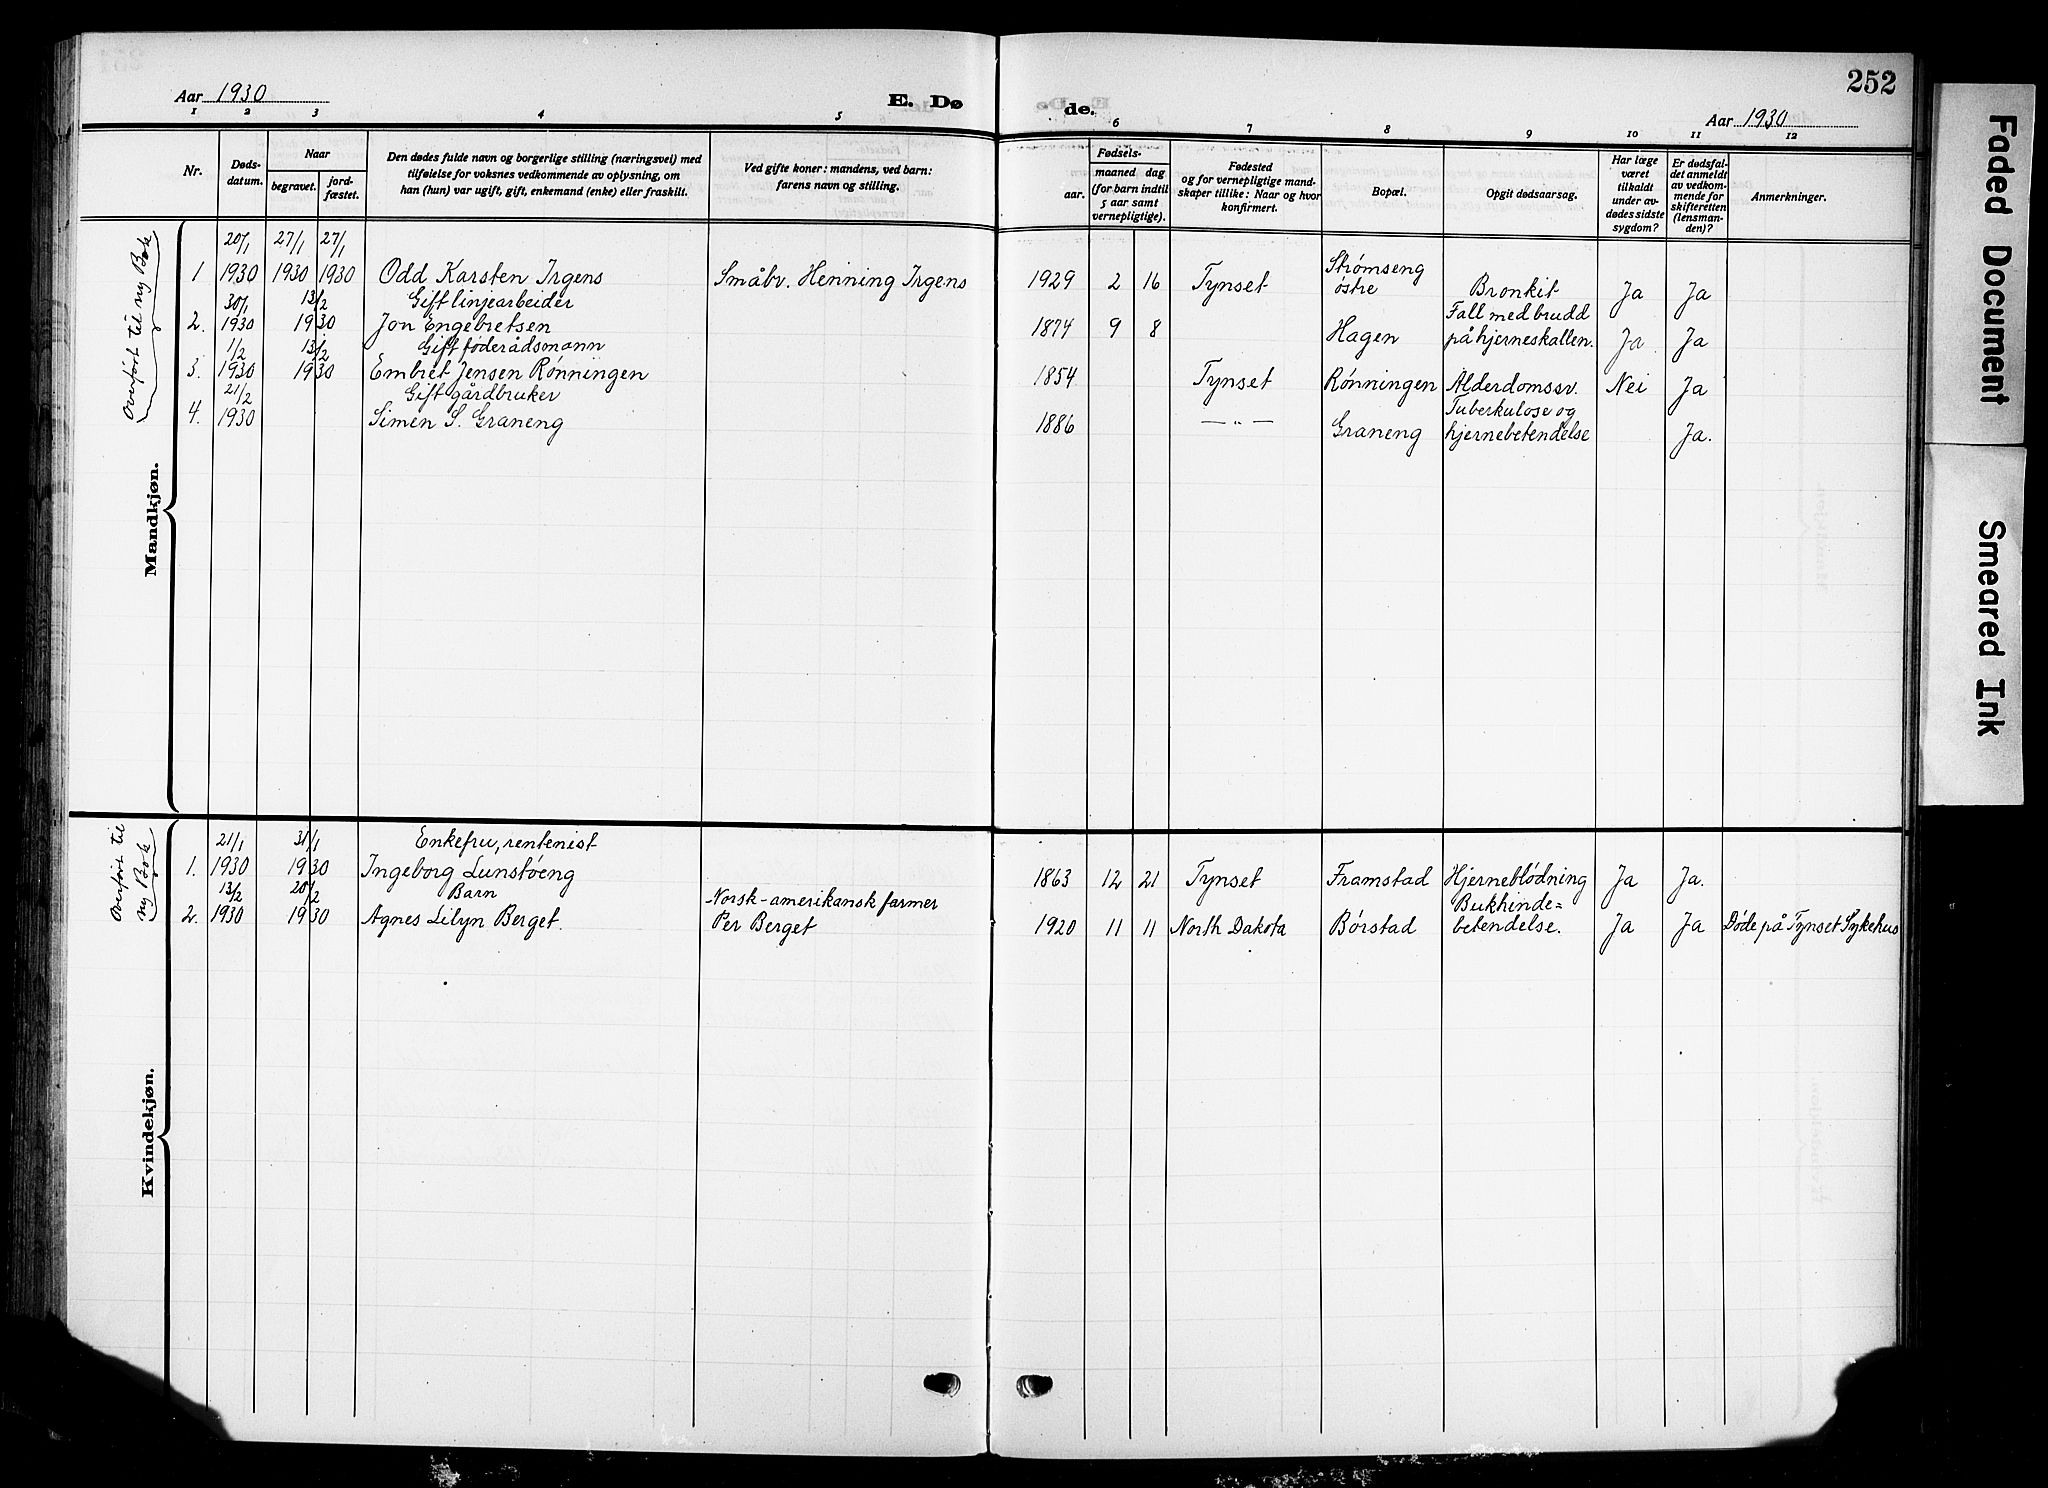 252
Aar 1930
E. Dø
de.
Aar 1930
1 2 3 4 5 6 7 8 9 10 11 12
Nr.
Døds-
datum.
Naar
begravet.
jord-
fæstet.
Den dødes fulde navn og borgerlige stilling (næringsvei) med
tilføielse for voksnes vedkommende av oplysning, om
han (hun) var ugift, gift, enkemand (enke) eller fraskilt.
Ved gifte koner: mandens, ved barn:
farens navn og stilling.
Fødsels-
aar.
maaned dag
(for barn indtil
5 aar samt
vernepligtige).
Fødested
og for vernepligtige mand-
skaper tillike: Naar og hvor
konfirmert.
Bopæl.
Opgit dødsaarsag.
Har læge
været
tilkaldt
under av-
dødes sidste
sygdom?
Er dødsfal-
det anmeldt
av vedkom-
mende for
skifteretten
(lensman-
den)?
Anmerkninger.
Overført til ny Bok
Mandkjøn.
20/1 27/1 27/1 Strømseng
1 1930 1930 1930 Odd Karsten Irgens Småbr. Henning Irgens 1929 2 16 Tynset østre Bronkit Ja Ja
30/1 13/2 Gift linjearbeider Fall med brudd
2. 1930 1930 Jon Engebretsen 1874 9 8 Hagen på hjerneskallen. Ja Ja
1/2 13/2 Gift føderådsmann
3. 1930 1930 Embret Jensen Rønningen 1854 Tynset Rønningen Alderdomssv. Nei Ja
21/2 Gift gårdbruker Tuberkulose og
4. 1930 Simen S. Graneng 1886 —"— Graneng hjernebetendelse Ja.
Overført til
ny Bok
Kvindekjøn.
21/1 31/1 Enkefru, rentenist
1. 1930 1930 Ingeborg Lunstøeng 1863 12 21 Tynset Framstad Hjerneblødning Ja Ja.
13/2 20/2 Barn Norsk-amerikansk farmer Bukhinde=
2. 1930 1930 Agnes Lilyn Berget. Per Berget 1920 11 11 North Dakota Børstad betendelse. Ja Ja Døde på Tynset Sykehus
Faded Document
Smeared Ink